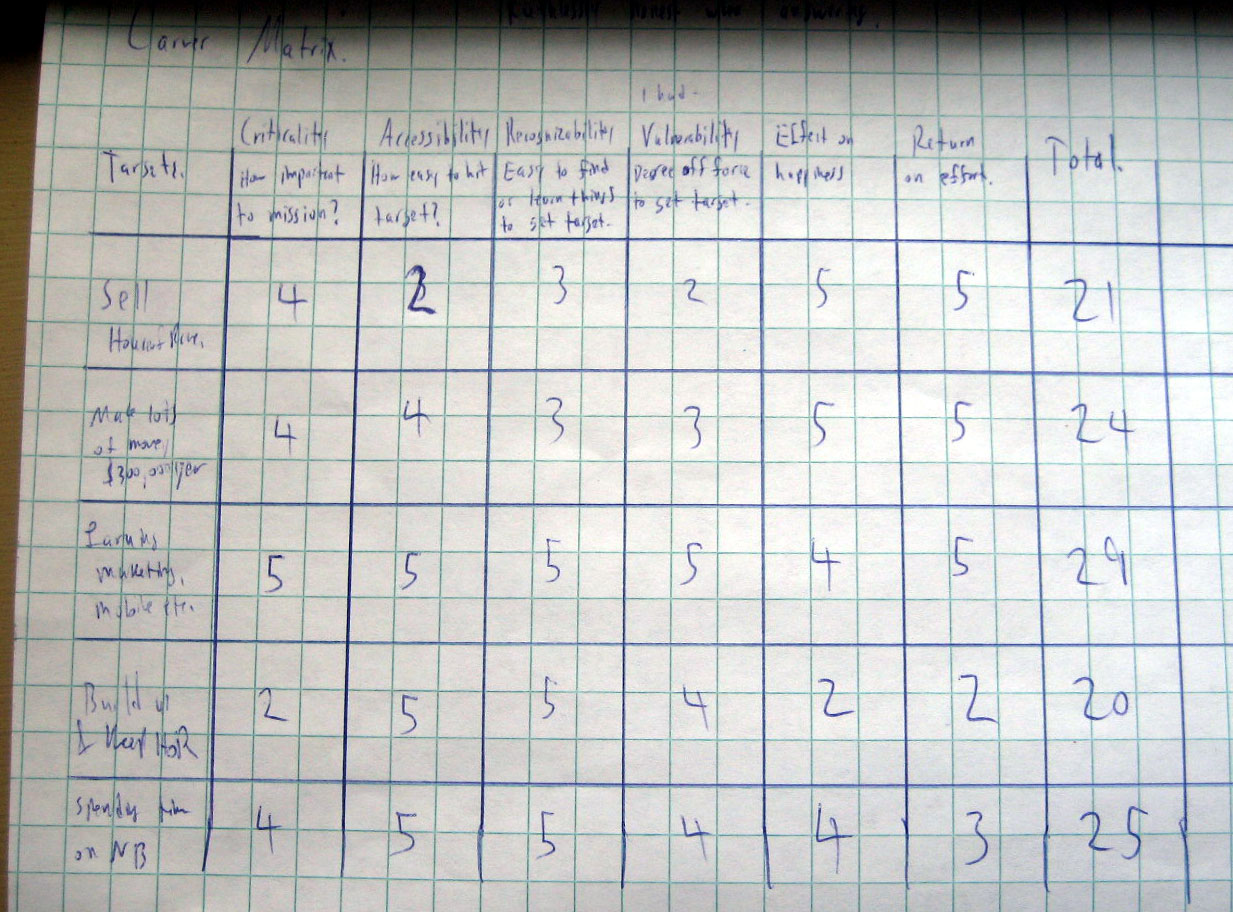 honest when answering.
Carver Matrix.
I had-
Targets.
Criticality
How important
to mission?
Accessibility
How easy to hit
target?
Recognizability
Easy to find
or learn things
to get target.
Vulnerability
Degree off force
to get target.
Effect on
happiness
Return
on effort.
Total.
Sell
4 2 3 2 5 5 21
Make lots
of money
$300,000/year
4 4 3 3 5 5 24
Learning
marketing,
mobile etc.
5 5 5 5 4 5 29
Build up
& Keep HoR
2 5 5 4 2 2 20
Spending time
on NB
4 5 5 4 4 3 25